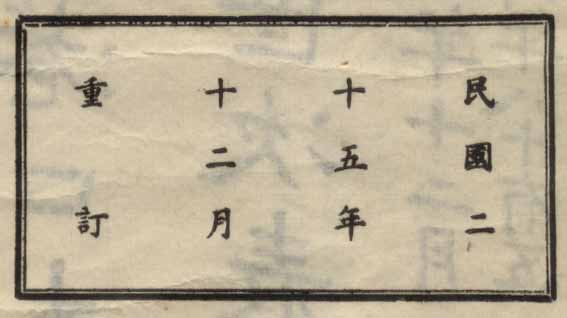 民國二
十五年
十二月
重訂